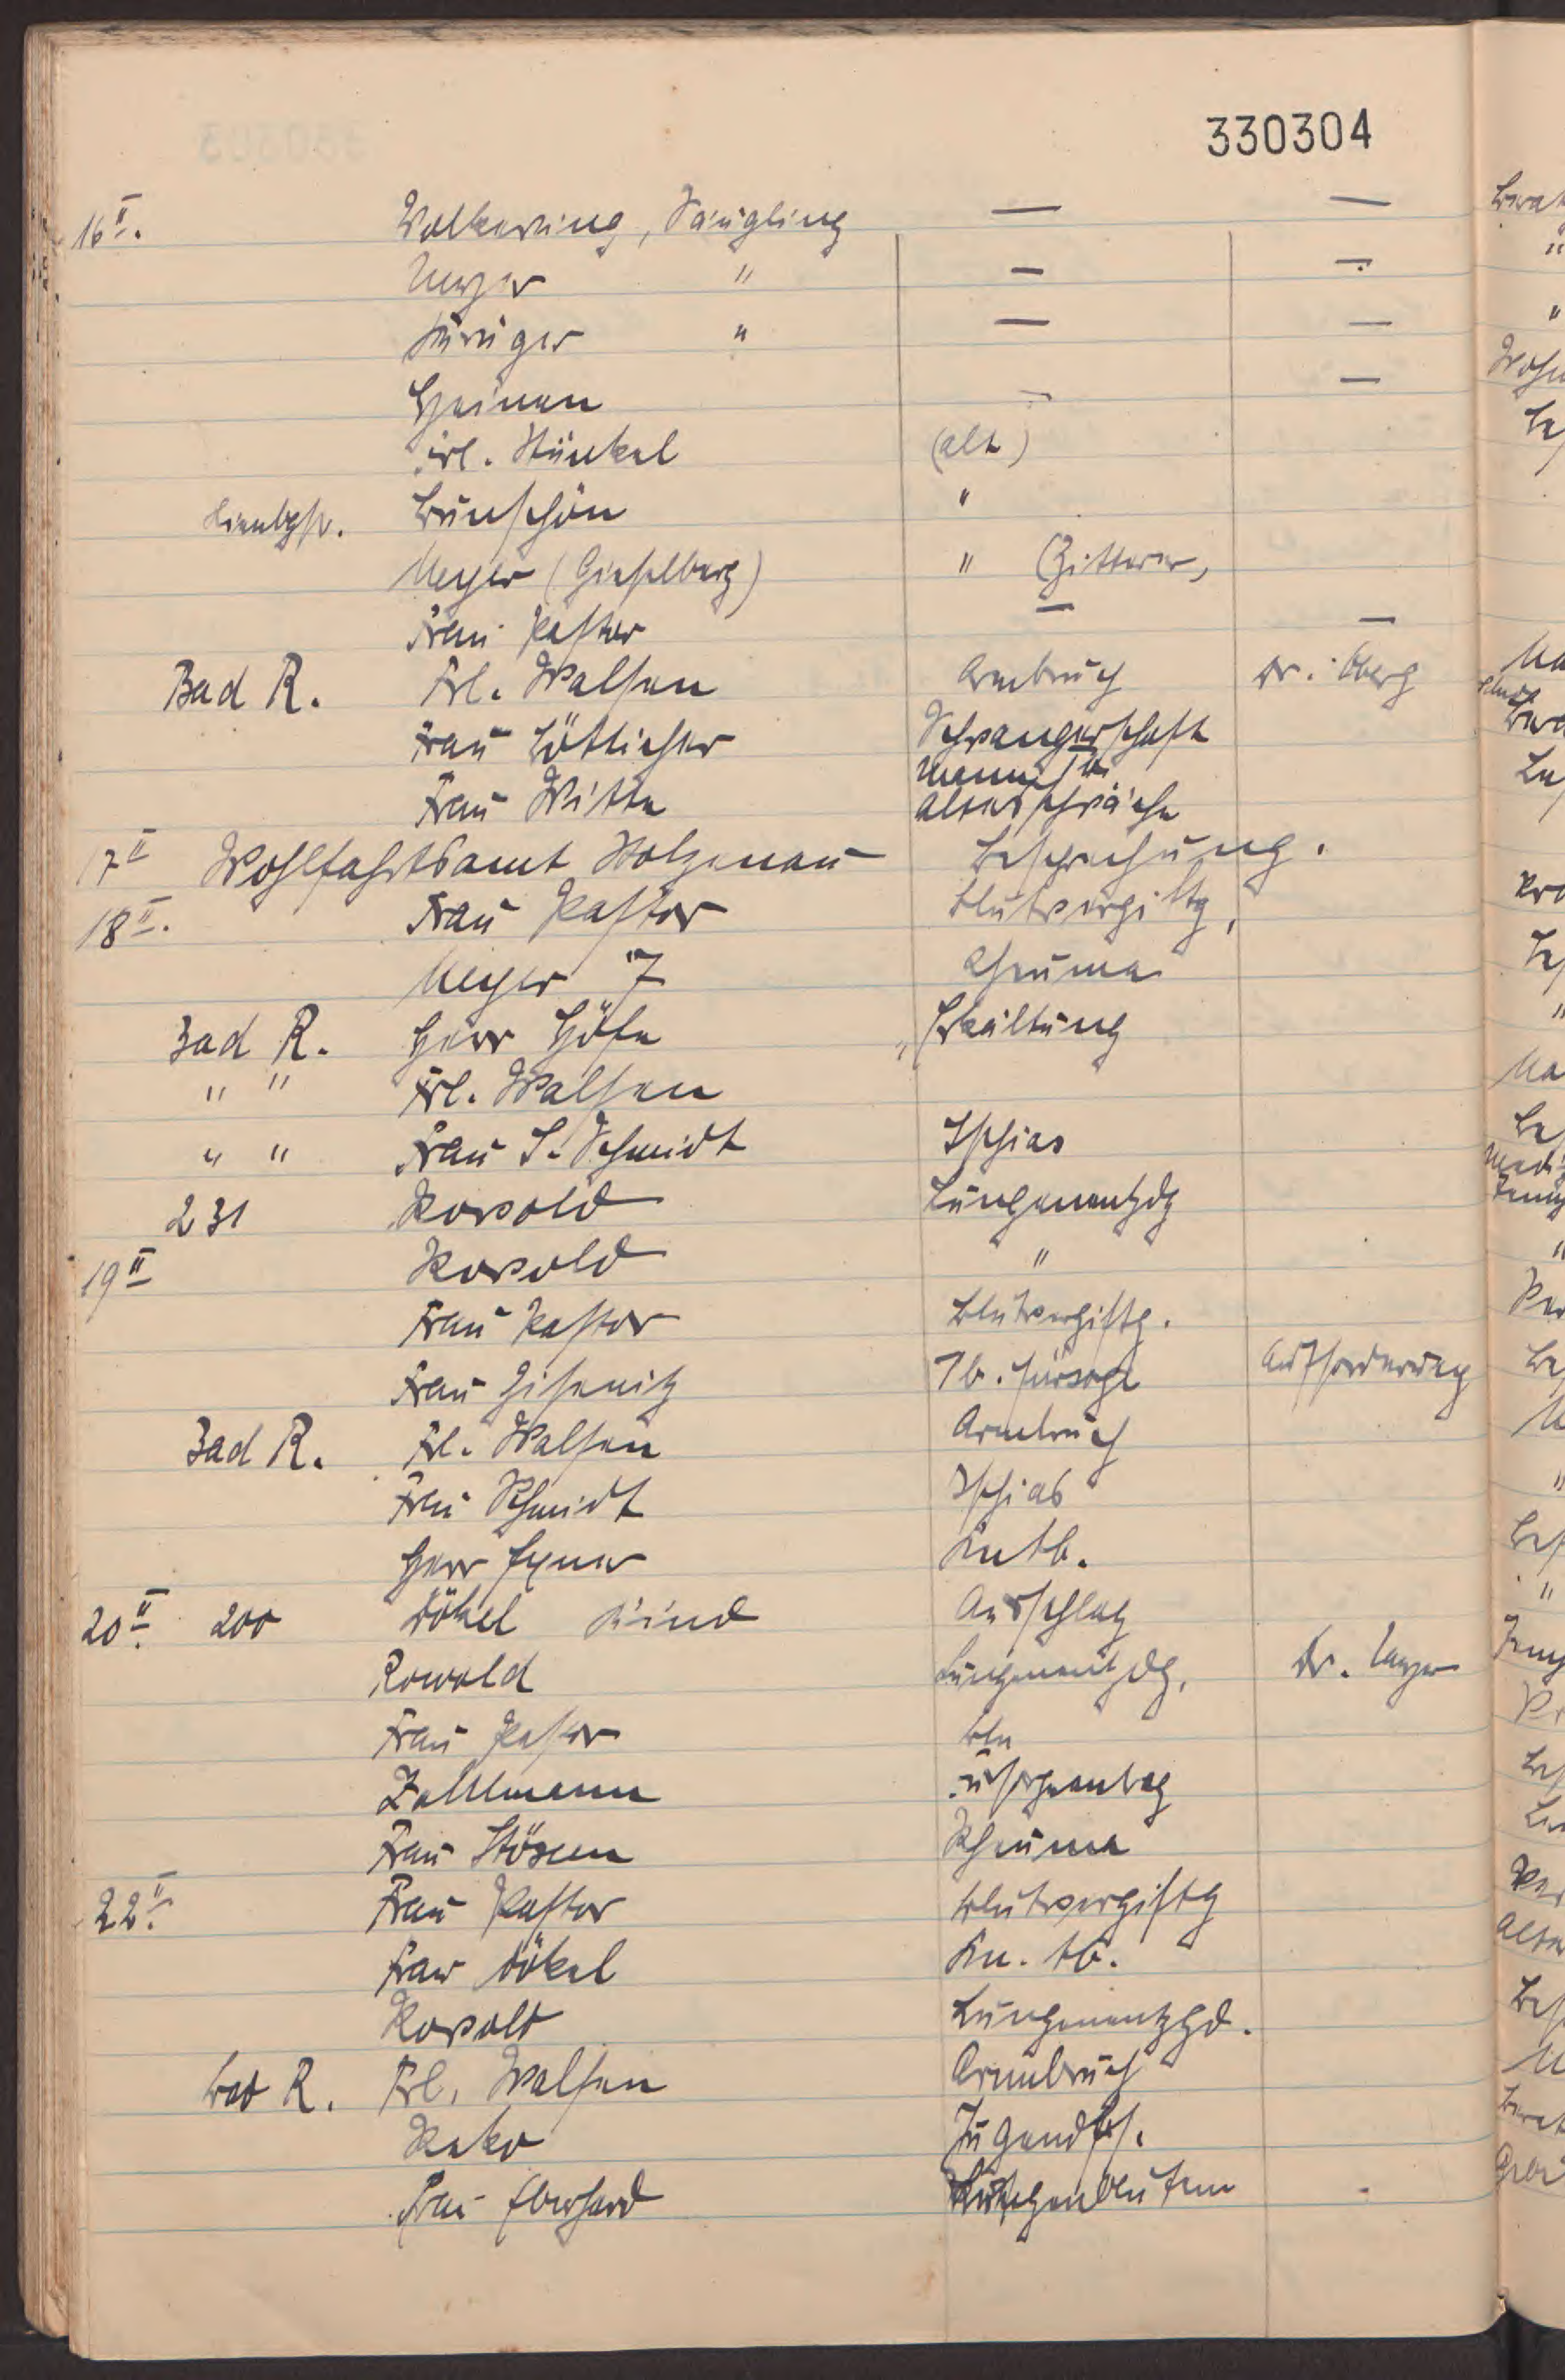 330304
16 II. Volkering, Säugling — —
Meyer " — —
Krüger " — —
Heinen — —
Frl. Stünkel (alt)
Wunschön "
Meyer (Gieselberg) " (Zitterer,
Frau Pastor — —
Bad R. Frl. Walsen Armbruch Dr. Oberg
Frau Böttcher Schwangerschaft
Frau Witte Altersschwäche
17 II Wohlfahrtsamt Stolzenau Besprechung.
18 II. Frau Pastor Blutvergiftg,
Meyer 7 Rheuma
Bad R. Herr Höfe Erkältung
" " Frl. Walsen
" " Frau S. Schmidt Ischias
231 Rowold Lungenentzdg
19 II Rowold "
Frau Pastor Blutvergiftg.
Frau Gisenitz Tb. fürsorge Aufforderung
Bad R. Frl. Walsen Armbruch
Frau Schmidt Ischias
Herr Exner Kntb.
20 II. 200 Dökel Kind Ausschlag
Rowold Lungenentzdg, Dr. Meyer
Frau Pastor Blu
Zahlmann Fürsorgeantrag
Frau Stösen Rheuma
22 II. Frau Pastor Blutvergiftg
Frau Dökel Kn. tb.
Rowold Lungenentzgd.
Bad R. Frl. Walsen Armbruch
Jugendhf.
Frau Eberhard